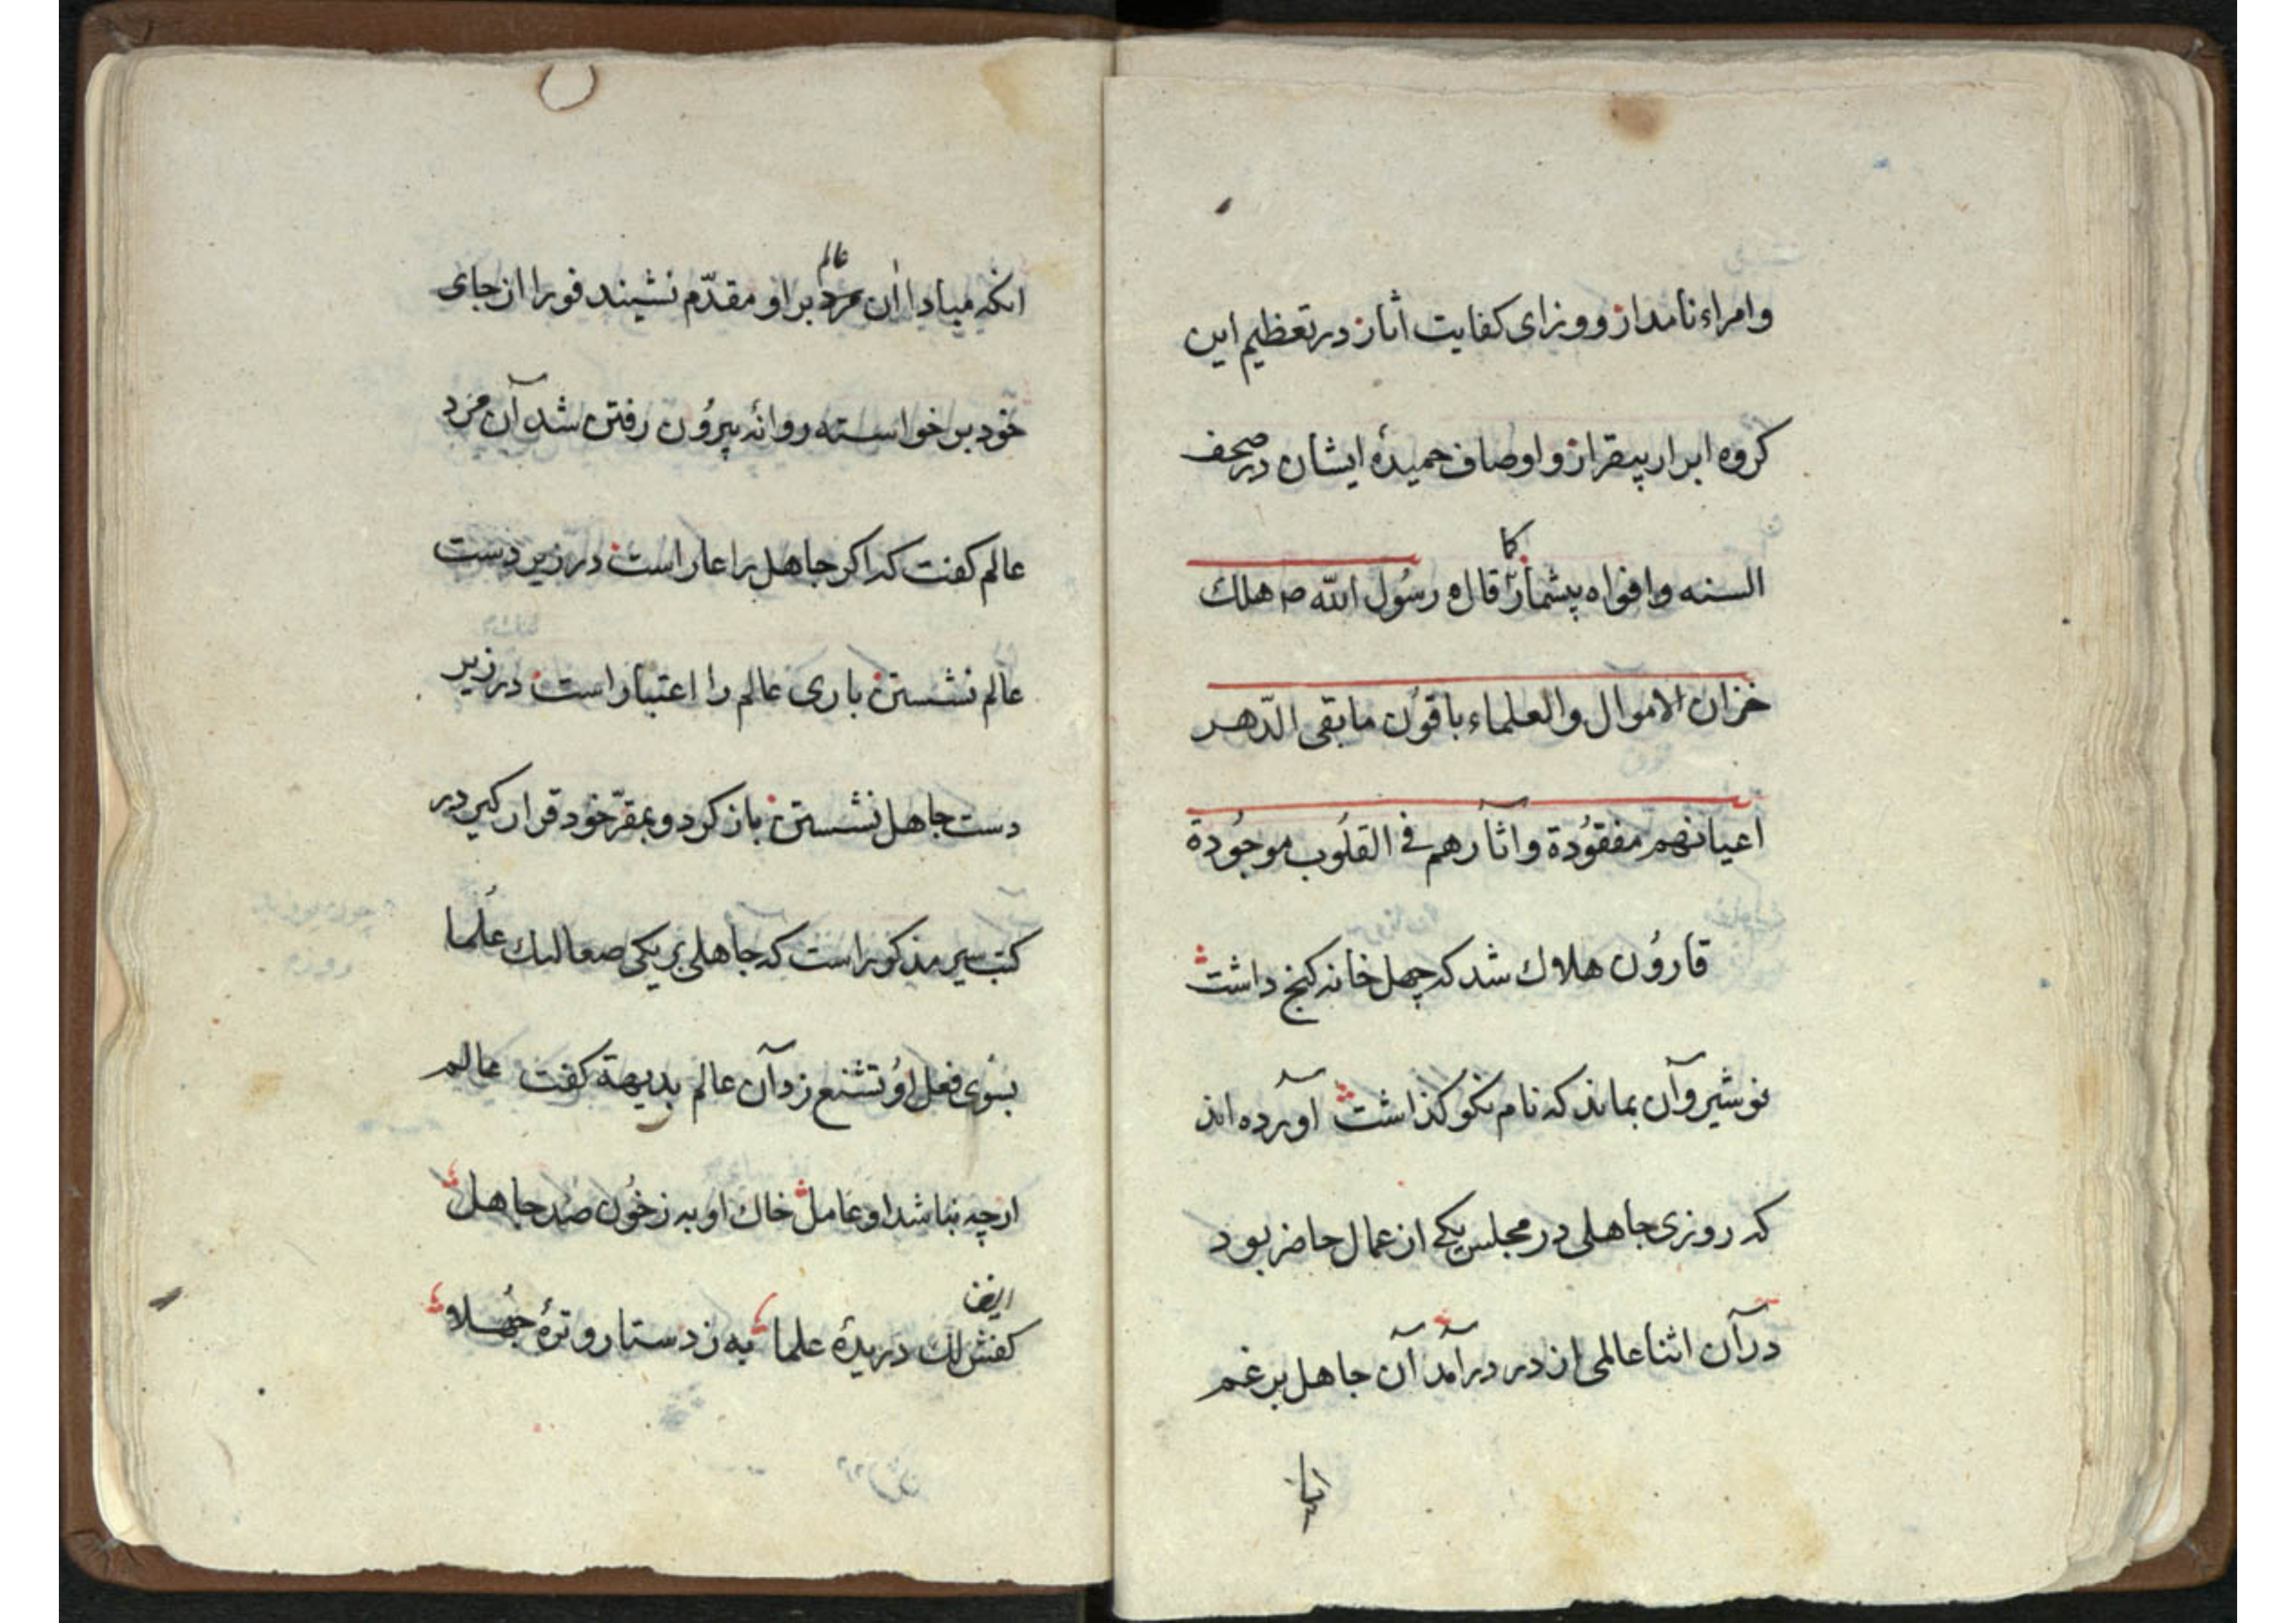 وامراء نامدار ووزرای کفایت اثار در تعظیم این
کروه ابرار بیقرار و اوصاف حمیدهٔ ایشان در صحف
کما
السنه وافواه بیشمار قال رسُول الله ص هلك
خزان الاموال والعلماء باقون ما بقی الدّهر
اعیانهم مفقوُدة واثارهم فی القلُوب موجُودة
قاروُن هلاك شد که چهل خانه کنج داشت
نوشیروآن بماند که نام نکو کذاشت آورده اند
که روزی جاهلی در مجلس یکی از عمال حاضر بود
در آن اثنا عالمی از در درآمد آن جاهل بر غم
عالم
انکه مبادا ان مرد بر او مقدّم نشیند فورا از جای
خود برخواسته روانهٔ بیرُون رفتن شد آن مرد
عالم کفت که اکر جاهل را عار است در زیر دست
عالم نشستن باری عالم را اعتبار است در زیر
دست جاهل نشستن باز کرد و بمقرّ خود قرار کیر در
کتب سیر مذکور است که جاهلی بر یکی صعالیك عُلما
بسُوی فعل اوُ تشنع زد آن عالم بدیهة کفت عالم
ارچه نباشد او عامل خاك او به ز خُون صد جاهل
ایضا
کفش لك دریدهٔ علما به ز دستار و ترهٔ جُهلا